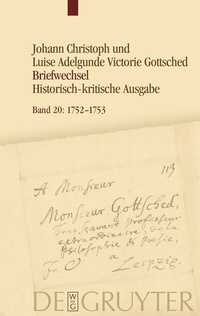 Johann Christoph und
Luise Adelgunde Victorie Gottsched
Briefwechsel
Historisch-kritische Ausgabe
Band 20: 1752–1753
113
A Monsieur
Monsieur Gottsched,
professeur
extraordinaire de la
Philosophie & Poesie,
à
Leipzig.
DE GRUYTER